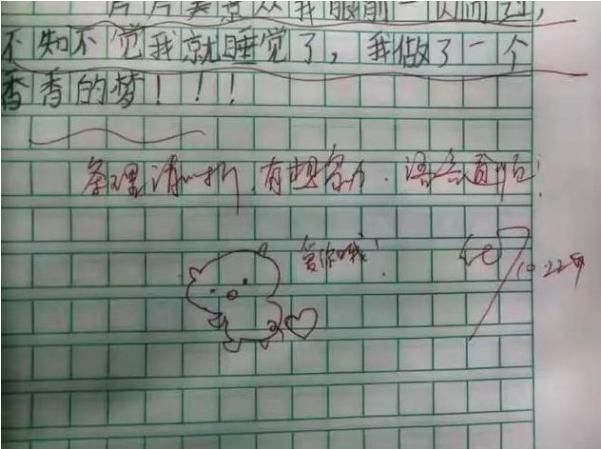 片片美景从我眼前一闪而过，
不知不觉我就睡觉了，我做了一个
香香的梦！！！
条理清晰，有想象力．语言通顺！
爱你哦！
10.22日